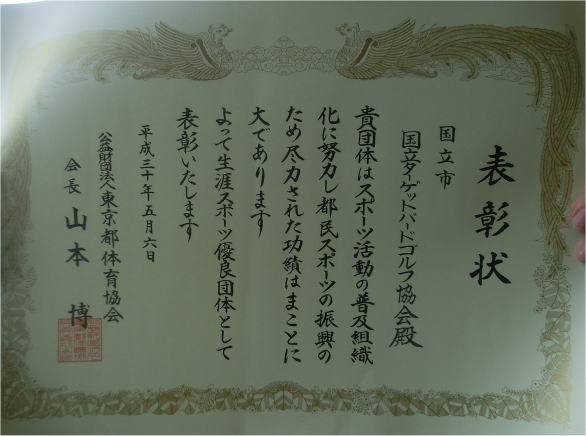 表彰状
国立市
国立ターゲットバードゴルフ協会殿
貴団体はスポーツ活動の普及組織
化に努力し都民スポーツの振興の
ため尽力された功績はまことに
大であります
よって生涯スポーツ優良団体として
表彰いたします
平成三十年五月六日
公益財団法人東京都体育協会
会長 山本 博